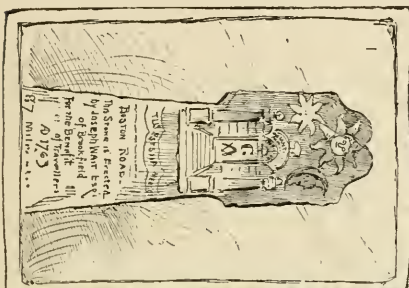 BOSTON ROAD
This Stone is Erected
by JOSEPH WAIT Esqr
of Brookfield
For the Benefit
of Travellers
AD 1763